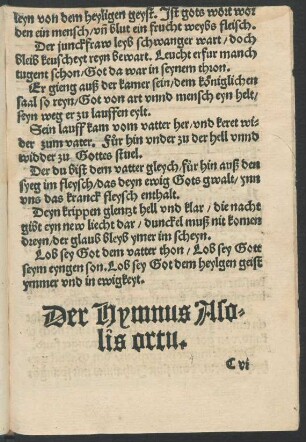 leyn von dem heyligen geyst. Ist gots wort wor
den ein mensch/ vñ blut ein frucht weybs fleisch.
Der junckfraw leyb schwanger wart / doch
bleib keuscheyt reyn bewart. Leucht erfur manch
tugent schon/ Got da war in seynem thron.
Er gieng auß der kamer sein/ dem königlichen
saal so reyn/ Got von art vnnd mensch eyn helt/
seyn weg er zu lauffen eylt.
Sein lauff kam vom vatter her/ vnd keret wi-
der zum vater. Für hin vnder zu der hell vnnd
widder zu Gottes stuel.
Der du bist dem vatter gleych/ für hin auß den
syeg im fleysch/ das deyn ewig Gots gwalt/ ynn
vns das kranck fleysch enthalt.
Deyn krippen glenzt hell vnd klar / die nacht
gibt eyn new liecht dar / dunckel muß nit komen
dreyn/ der glaub bleyb ymer im scheyn.
Lob sey Got dem vatter thon/ Lob sey Gott
seym eyngen son. Lob sey Got dem heylgen geist
ymmer vnd in ewigkeyt.
Der Hymnus Aso-
lis ortu.
C vi